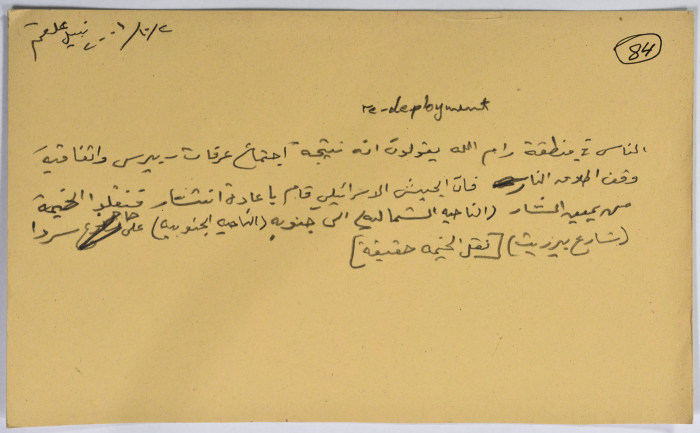 نبيل علقم ٢/١٠/٢٠٠١
84
re-deployment
الناس في منطقة رام الله يقولون انه نتيجة اجتماع عرفات - بيرس واتفاقية
وقف اطلاق النار فان الجيش الاسرائيلي قام باعادة انتشار فنقلوا الخيمة
من يمين الشارع (الناحيه الشماليه) الى جنوبه (الناحيه الجنوبيه) على حاجز سردا
(شارع بيرزيت) [نقل الخيمه حقيقة]